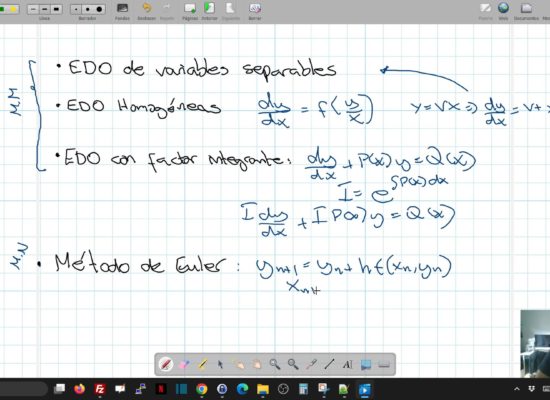 Borrador
Fondos
Deshacer
Rehacer
Páginas
Anterior
Siguiente
Borrar
Puntero
Web
Documentos
• EDO de variables separables
• EDO Homogéneas dy/dx = f(y/x) y = vx ⇒ dy/dx = v +
• EDO con factor integrante: dy/dx + P(x) y = Q(x)
I = e^∫P(x)dx
I dy/dx + I P(x) y = Q(x)
• Método de Euler: y_{n+1} = y_n + h f(x_n, y_n)
x_{n+